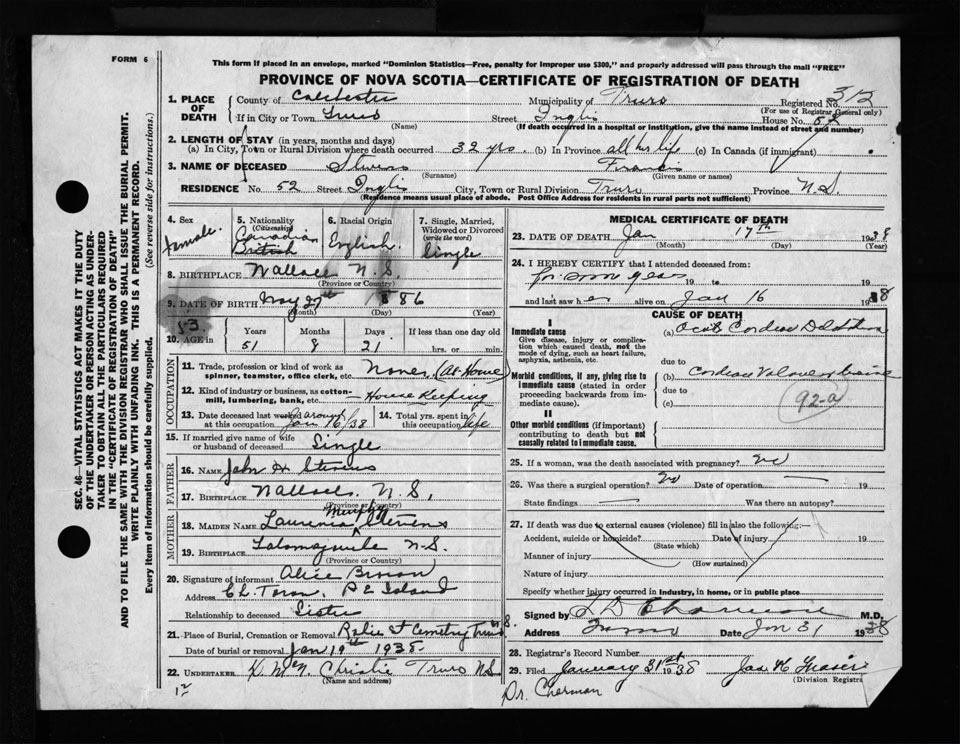 FORM 6
This form if placed in an envelope, marked "Dominion Statistics—Free, penalty for improper use $300," and properly addressed will pass through the mail "FREE"
PROVINCE OF NOVA SCOTIA—CERTIFICATE OF REGISTRATION OF DEATH
1. PLACE OF DEATH County of Colchester Municipality of Truro Registered No. 312
(For use of Registrar General only)
If in City or Town Truro Street Inglis House No. 52
(Name) (If death occurred in a hospital or institution, give the name instead of street and number)
2. LENGTH OF STAY (in years, months and days)
(a) In City, Town or Rural Division where death occurred 32 yrs. (b) In Province all her life (c) In Canada (if immigrant)
3. NAME OF DECEASED Stevens
(Surname) (Given name or names)
RESIDENCE No. 52 Street Inglis City, Town or Rural Division Truro Province N.S.
(Residence means usual place of abode. Post Office Address for residents in rural parts not sufficient)
4. Sex. Female
5. Nationality (Citizenship) Canadian British
6. Racial Origin English.
7. Single, Married, Widowed or Divorced (write the word) Single
8. BIRTHPLACE Wallace N.S.
(Province or Country)
9. DATE OF BIRTH May 27th 1886
(Month) (Day) (Year)
53.
10. AGE in Years Months Days If less than one day old
51 8 21 hrs. or min.
OCCUPATION
11. Trade, profession or kind of work as spinner, teamster, office clerk, etc. None, (At Home)
12. Kind of industry or business, as cotton-mill, lumbering, bank, etc. House Keeping
13. Date deceased last worked at this occupation Jan 16/38
14. Total yrs. spent in this occupation life
15. If married give name of wife or husband of deceased Single
FATHER
16. NAME John H Stevens
17. BIRTHPLACE Wallace, N.S.,
(Province or Country)
MOTHER
18. MAIDEN NAME Murphy Stevens
19. BIRTHPLACE N-S.
(Province or Country)
20. Signature of informant Alice Brown
Address P E Island
Relationship to deceased Sister
21. Place of Burial, Cremation or Removal Robie St Cemetery Truro N.S.
Date of burial or removal Jan 19th 1938
22. UNDERTAKER Christie Truro N.S.
(Name and address)
MEDICAL CERTIFICATE OF DEATH
23. DATE OF DEATH Jan 17th 1938
(Month) (Day) (Year)
24. I HEREBY CERTIFY that I attended deceased from:
for some years 19 to 19
and last saw her alive on Jan 16 1938
CAUSE OF DEATH
I
Immediate cause
Give disease, injury or complication which caused death, not the mode of dying, such as heart failure, asphyxia, asthenia, etc.
(a) Cardiac Dilatation
due to
Morbid conditions, if any, giving rise to immediate cause (stated in order proceeding backwards from immediate cause).
(b) Cardiac
due to
(c)
92-a
II
Other morbid conditions (if important) contributing to death but not causally related to immediate cause.
25. If a woman, was the death associated with pregnancy? no
26. Was there a surgical operation? no Date of operation — 19
State findings — Was there an autopsy?
27. If death was due to external causes (violence) fill in also the following:—
Accident, suicide or homicide? Date of injury 19
(State which)
Manner of injury
(How sustained)
Nature of injury
Specify whether injury occurred in Industry, in home, or in public place
Signed by M.D.
Address Truro Date Jan 31 1938
28. Registrar's Record Number
29. Filed January 31st 1938 Jas H Fraser
(Division Registra
SEC. 46—VITAL STATISTICS ACT MAKES IT THE DUTY
OF THE UNDERTAKER OR PERSON ACTING AS UNDER-
TAKER TO OBTAIN ALL THE PARTICULARS REQUIRED
IN THE "CERTIFICATE OF REGISTRATION OF DEATH"
AND TO FILE THE SAME WITH THE DIVISION REGISTRAR WHO SHALL ISSUE THE BURIAL PERMIT.
WRITE PLAINLY WITH UNFADING INK. THIS IS A PERMANENT RECORD.
Every item of information should be carefully supplied. (See reverse side for instructions.)